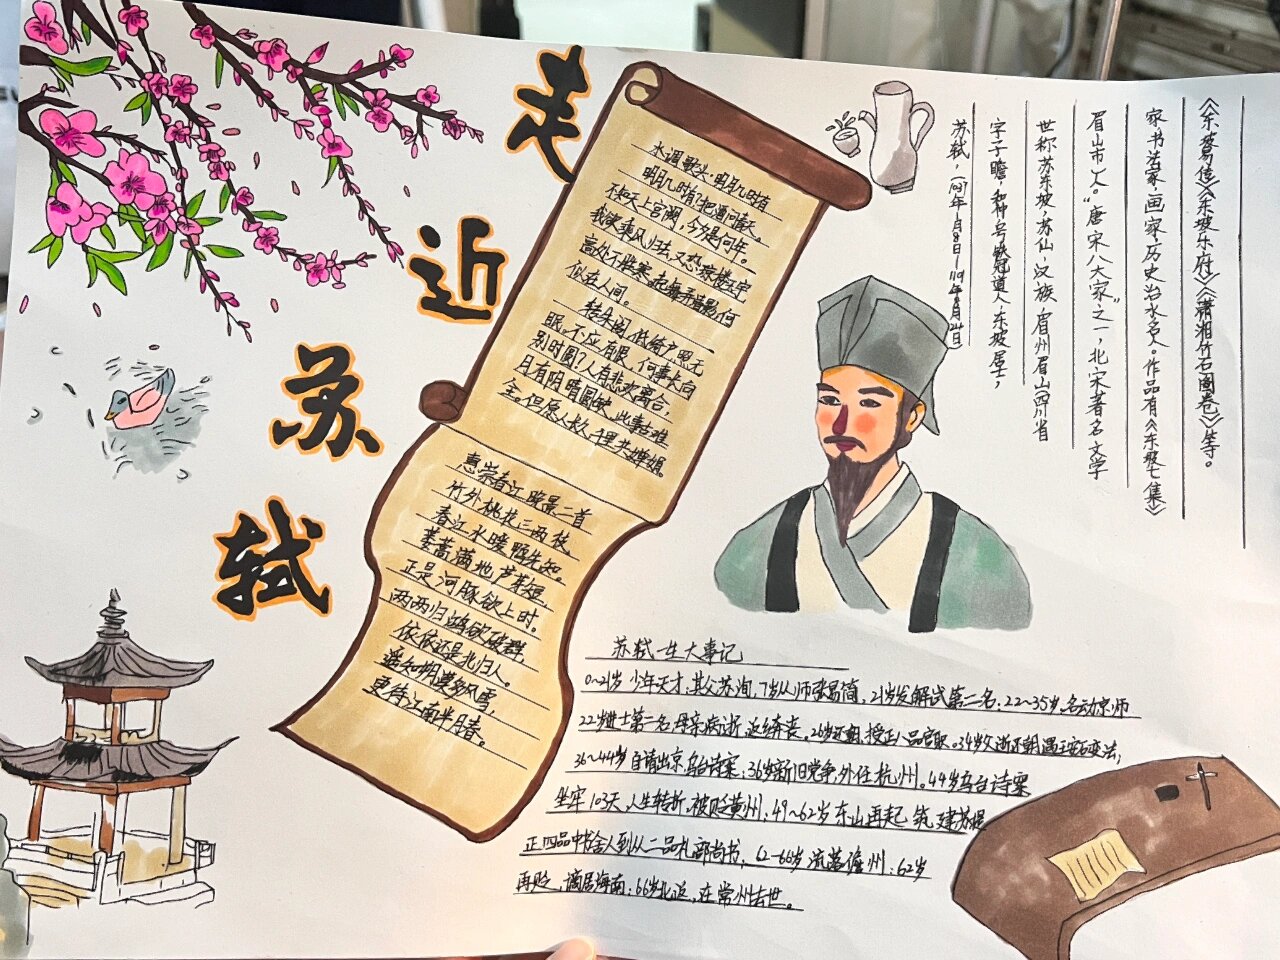 走近苏轼
水调歌头·明月几时有
明月几时有?把酒问青天。
不知天上宫阙,今夕是何年。
我欲乘风归去,又恐琼楼玉宇
高处不胜寒,起舞弄清影,何
似在人间。
转朱阁,低绮户,照无
眠。不应有恨,何事长向
别时圆?人有悲欢离合,
月有阴晴圆缺,此事古难
全。但愿人长久,千里共婵娟。
惠崇春江晚景二首
竹外桃花三两枝,
春江水暖鸭先知。
蒌蒿满地芦芽短,
正是河豚欲上时。
两两归鸿欲破群,
依依还是北归人。
遥知朔漠多风雪,
更待江南半月春。
苏轼,(1037年1月8日—1101年8月24日)
字子瞻,和仲,号铁冠道人,东坡居士,
世称苏东坡,苏仙,汉族,眉州眉山(四川省
眉山市)人。“唐宋八大家”之一,北宋著名文学
家书法家,画家历史治水名人。作品有《东坡七集》
《东坡易传》《东坡乐府》《潇湘竹石图卷》等。
苏轼一生大事记
0~21岁 少年天才,其父苏洵,7岁从师张易简,21岁发解试第二名,22~35岁,名动京师
22岁进士第二名,母亲病逝,返乡奔丧。26岁还朝,授正八品官职。34岁父逝还朝遇王安石变法;
36~44岁 自请出京,乌台诗案;36岁新旧党争,外任杭州。44岁乌台诗案
坐牢103天,人生转折,被贬黄州;49~62岁 东山再起,筑建苏堤
正四品中书舍人到从二品礼部尚书,62-66岁 流落儋州:62岁
再贬,谪居海南;66岁北返,在常州去世。